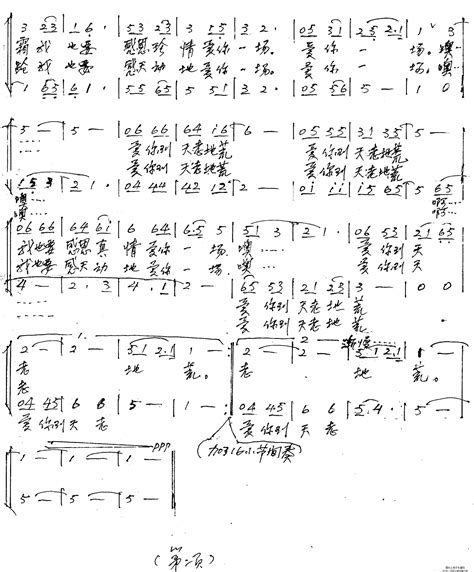 3 2 3 | 1 6· | 5 3 2 3 | 3 5 5 | 3 2· | 0 5 3 1 | 2 5 2·1 | 1 3
霜我 也要 感恩珍 情爱你 一场。 爱你 一 场。噢
我 也要 感天动 地爱你 一场。 爱你 一 场。噢
1 6 5 | 6 1· | 5 5 6 5 | 5 5 1 | 3 2· | 0 2 5 6 | 5 — | 1 0
5 — | 5 — | 0 6 6 6 | 6 4 i 6 | 6 — | 0 5 5 5 | 3 1 3 5 | 5 —
爱你到 天老地荒 爱你到 天老地荒
爱你到 天老地荒 爱你到 天老地荒
1 5 3 | 2 1· | 0 4 4 4 | 4 2 1 2 | 2 — | 0 i i i | i 5 6 5 | 5 6 5
噢 啊
噢 啊
0 6 6 6 | 6 4 6 i | 6 6 4 | 6·5 5 | 5 1 3 | 2 1· | 0 6 5 3 | 2 1 6 5
我也要 感恩真 情 爱你 一场 噢 爱你到 天
我也要 感天动 地 爱你 一场 噢 爱你到 天
4 — | 2· 3 | 4· 1 | 2 — | 6 5 5 3 | 2 1 2 3 | 3 — | 0 0
爱你到 天老地 荒
爱你到 天老地 荒
1.
2 — | 2 — | 5 1 2·1 | 1 — :| 2 — | 2 — | 5 1 2·1 | 1 —
2 渐慢
老 地 荒。 老 地 荒。
老
0 4 4 5 | 6 6 | 5 — | 1 — :| 0 4 4 5 | 6 6 | 5·4· | 5 —
爱你到 天老 爱你到 天老
(加16小节间奏)
ppp
1 — | 1 — | 1 —
5 — | 5 — | 5 —
(第 页)